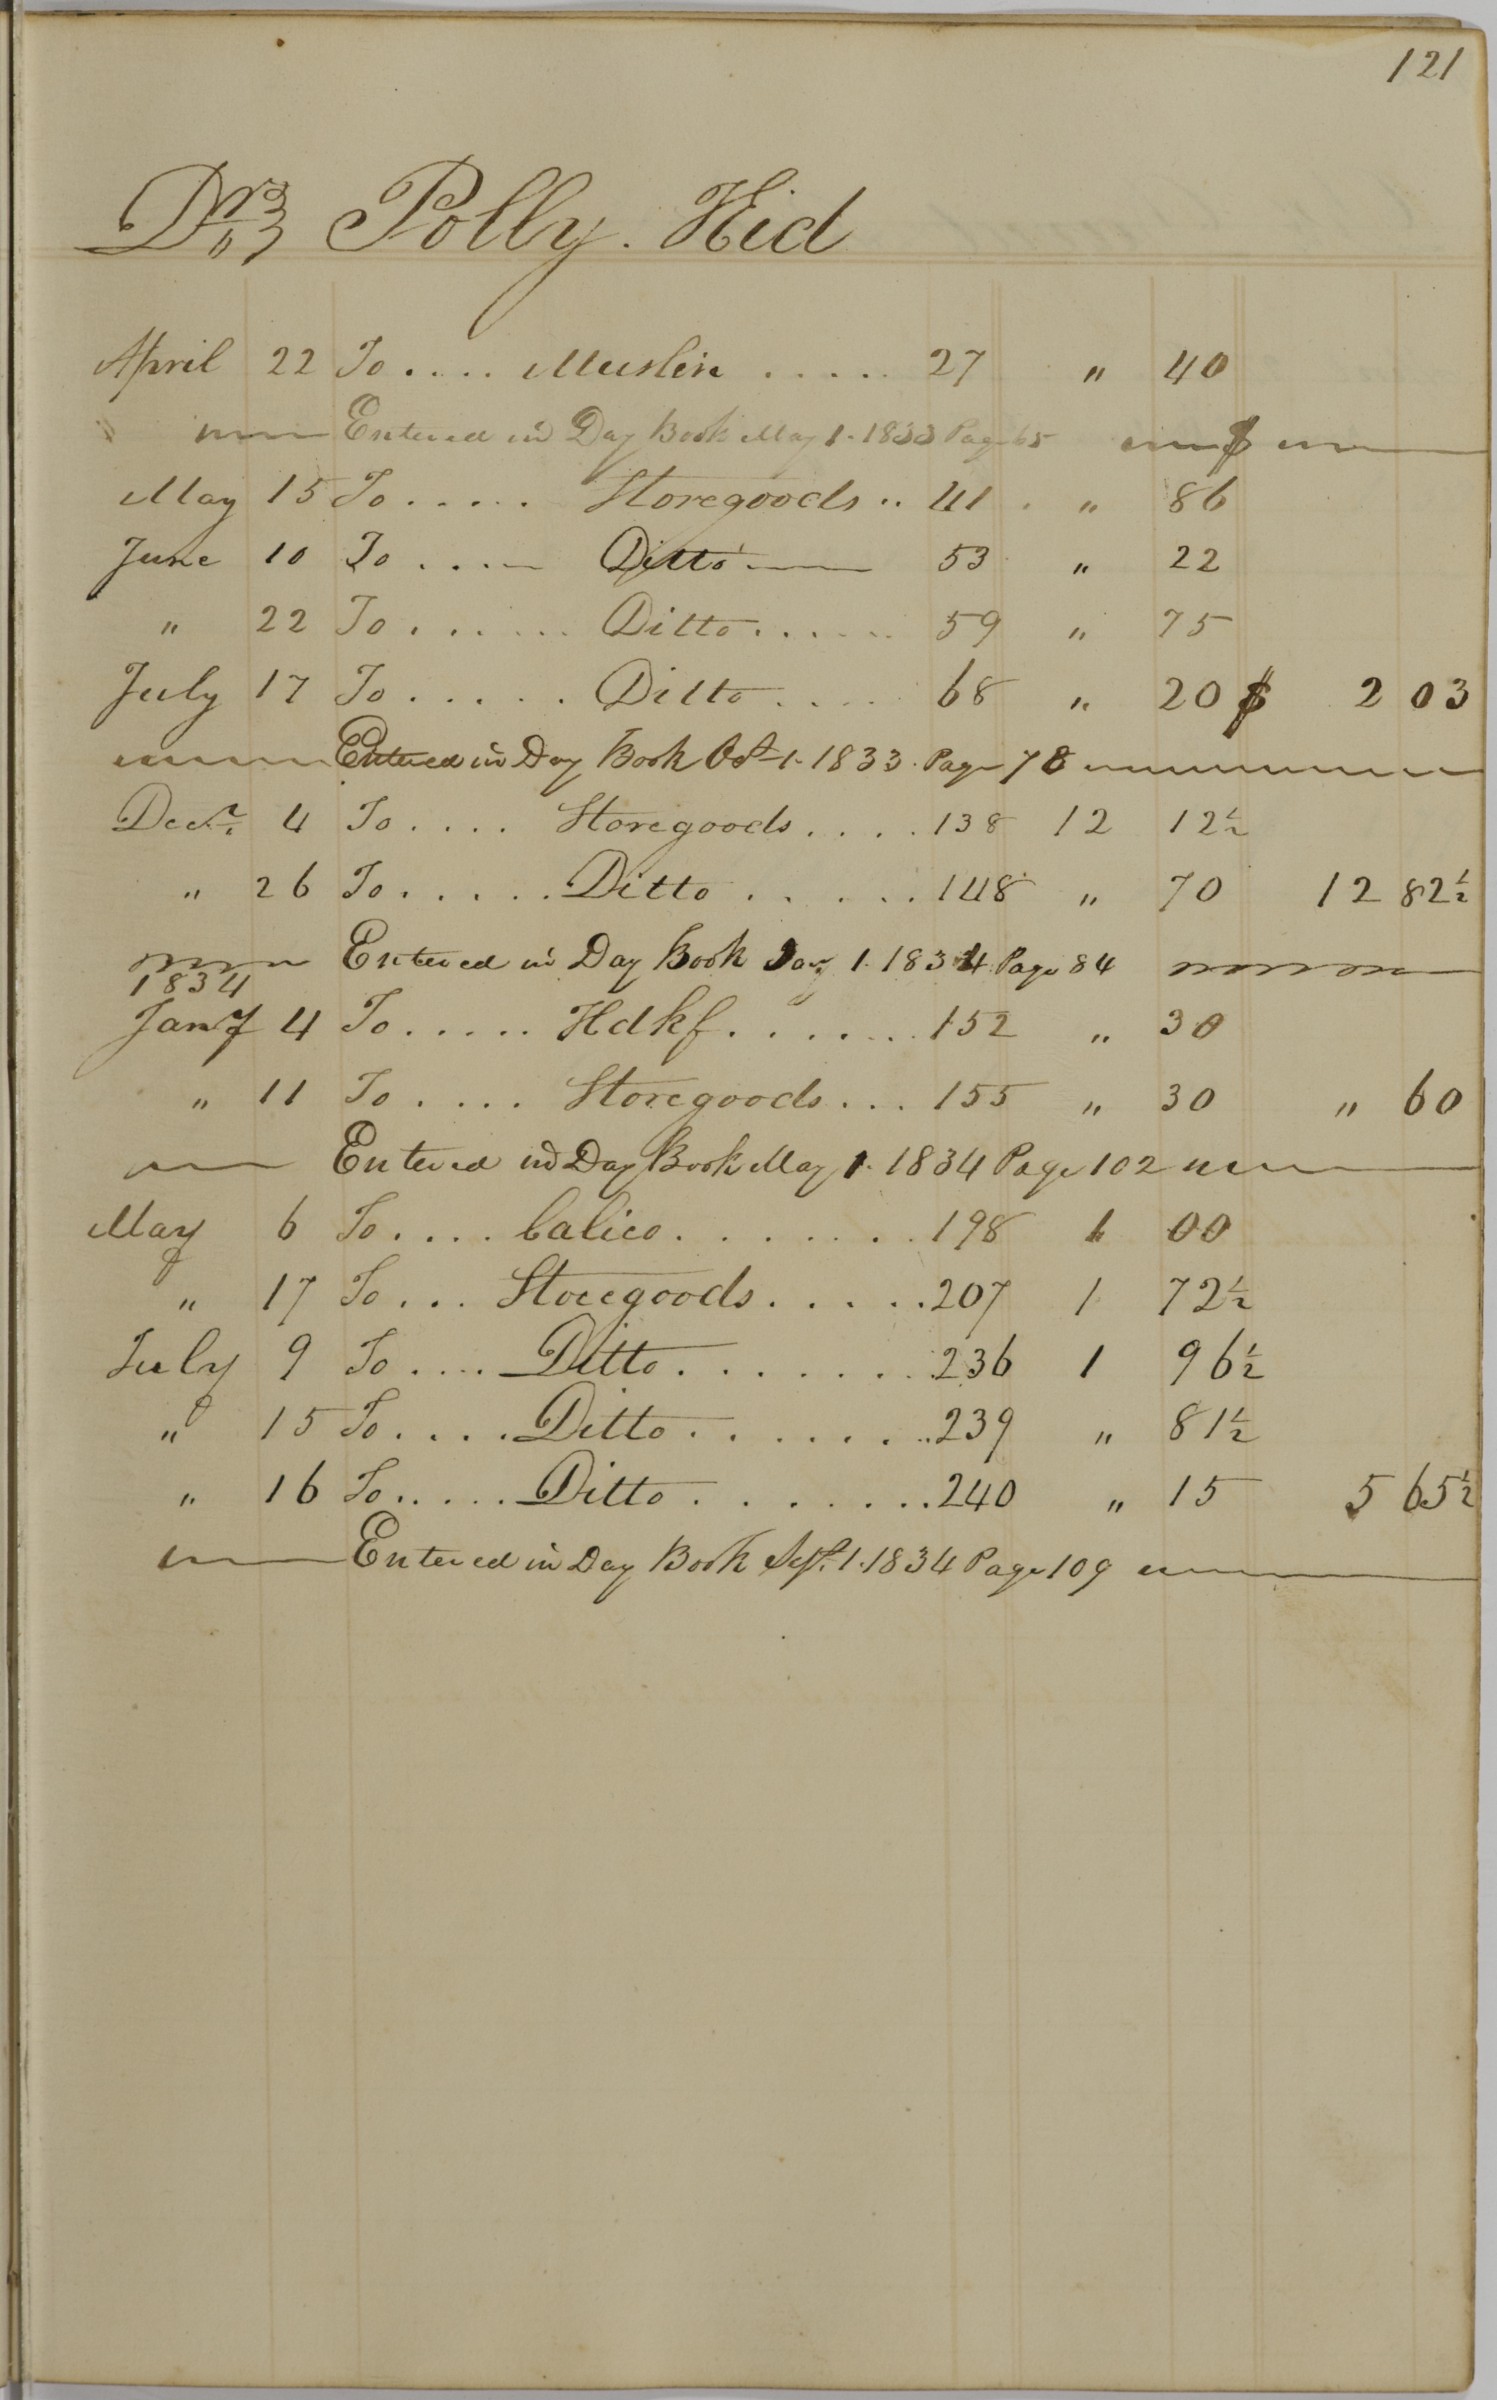 121
Dr. Polly. Hid
April 22 To .... Muslin ..... 27 " 40
" Entered in Day Book May 1. 1833 Page 65 $
May 15 To ..... Storegoods .. 41 . " 86
June 10 To .... Ditto 53 " 22
" 22 To ....... Ditto ...... 59 " 75
July 17 To ..... Ditto .... 68 " 20 $ 2 03
Entered in Day Book Oct 1. 1833. Page 78
Decr. 4 To .... Storegoods .... 138 12 12½
" 26 To ..... Ditto ...... 148 " 70 12 82½
Entered in Day Book Jany 1. 1834 Page 84
1834
Jany 4 To ..... Hdkf ...... 152 " 30
" 11 To .... Storegoods ... 155 " 30 " 60
Entered in Day Book May 1. 1834 Page 102
May 6 To .... Calico ....... 198 1 00
" 17 To ... Storegoods ..... 207 1 72½
July 9 To .... Ditto ....... 236 1 96½
" 15 To .... Ditto ....... 239 " 81½
" 16 To ..... Ditto ....... 240 " 15 5 65½
Entered in Day Book Sept. 1. 1834 Page 109